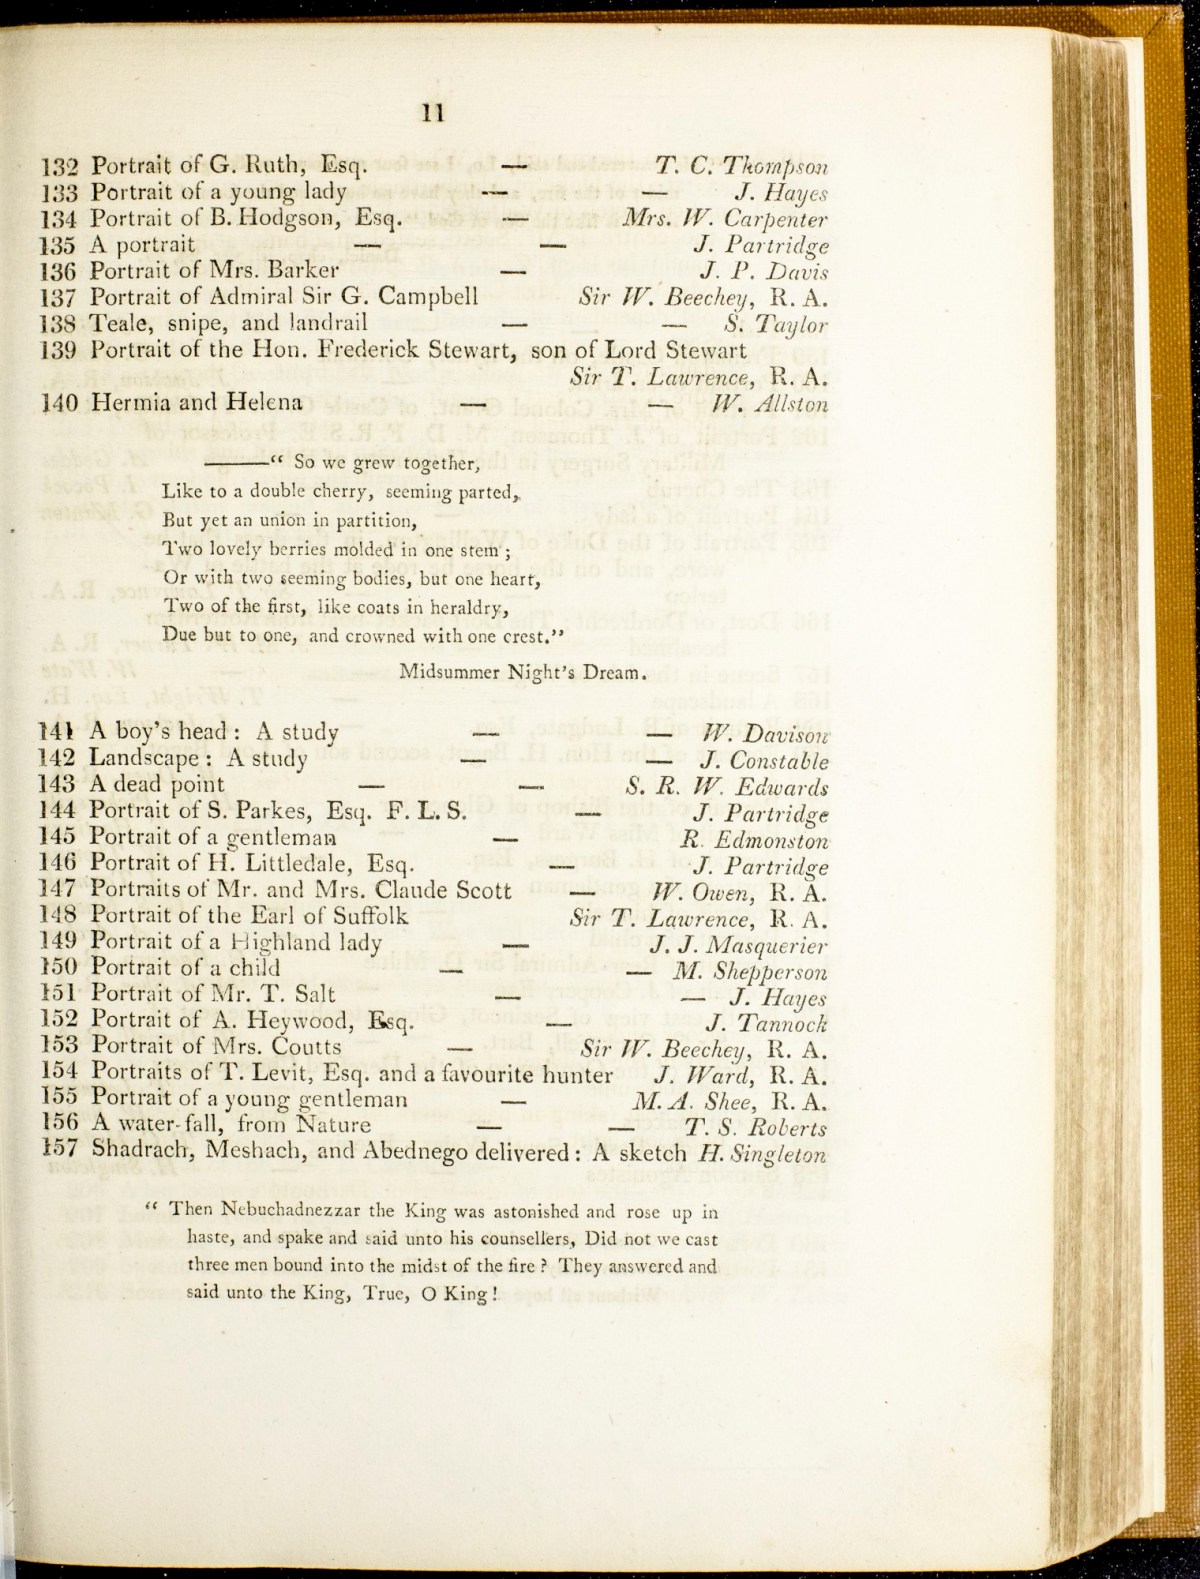 11
132 Portrait of G. Ruth, Esq. — T. C. Thompson
133 Portrait of a young lady — — J. Hayes
134 Portrait of B. Hodgson, Esq. — Mrs. W. Carpenter
135 A portrait — — J. Partridge
136 Portrait of Mrs. Barker — J. P. Davis
137 Portrait of Admiral Sir G. Campbell Sir W. Beechey, R. A.
138 Teale, snipe, and landrail — — S. Taylor
139 Portrait of the Hon. Frederick Stewart, son of Lord Stewart
Sir T. Lawrence, R. A.
140 Hermia and Helena — — W. Allston
———“ So we grew together,
Like to a double cherry, seeming parted,
But yet an union in partition,
Two lovely berries molded in one stem ;
Or with two seeming bodies, but one heart,
Two of the first, like coats in heraldry,
Due but to one, and crowned with one crest.”
Midsummer Night's Dream.
141 A boy's head : A study — — W. Davison
142 Landscape : A study — — J. Constable
143 A dead point — — S. R. W. Edwards
144 Portrait of S. Parkes, Esq. F. L. S. — J. Partridge
145 Portrait of a gentleman — R. Edmonston
146 Portrait of H. Littledale, Esq. — J. Partridge
147 Portraits of Mr. and Mrs. Claude Scott — W. Owen, R. A.
148 Portrait of the Earl of Suffolk Sir T. Lawrence, R. A.
149 Portrait of a Highland lady — J. J. Masquerier
150 Portrait of a child — — M. Shepperson
151 Portrait of Mr. T. Salt — — J. Hayes
152 Portrait of A. Heywood, Esq. — J. Tannock
153 Portrait of Mrs. Coutts — Sir W. Beechey, R. A.
154 Portraits of T. Levit, Esq. and a favourite hunter J. Ward, R. A.
155 Portrait of a young gentleman — M. A. Shee, R. A.
156 A water-fall, from Nature — — T. S. Roberts
157 Shadrach, Meshach, and Abednego delivered : A sketch H. Singleton
“ Then Nebuchadnezzar the King was astonished and rose up in
haste, and spake and said unto his counsellers, Did not we cast
three men bound into the midst of the fire ? They answered and
said unto the King, True, O King !